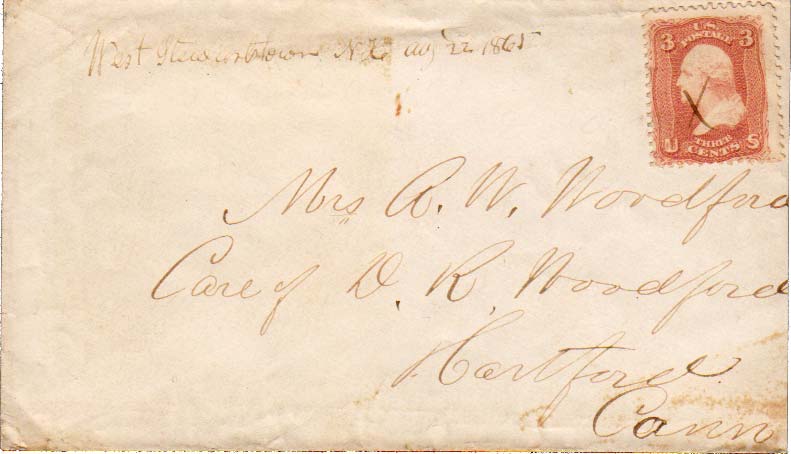 West Stewartstown N.H. aug 22 1865
3 U.S. POSTAGE 3
U THREE CENTS S
Mrs A. W. Woodford
Care of D. R. Woodford
Hartford
Conn